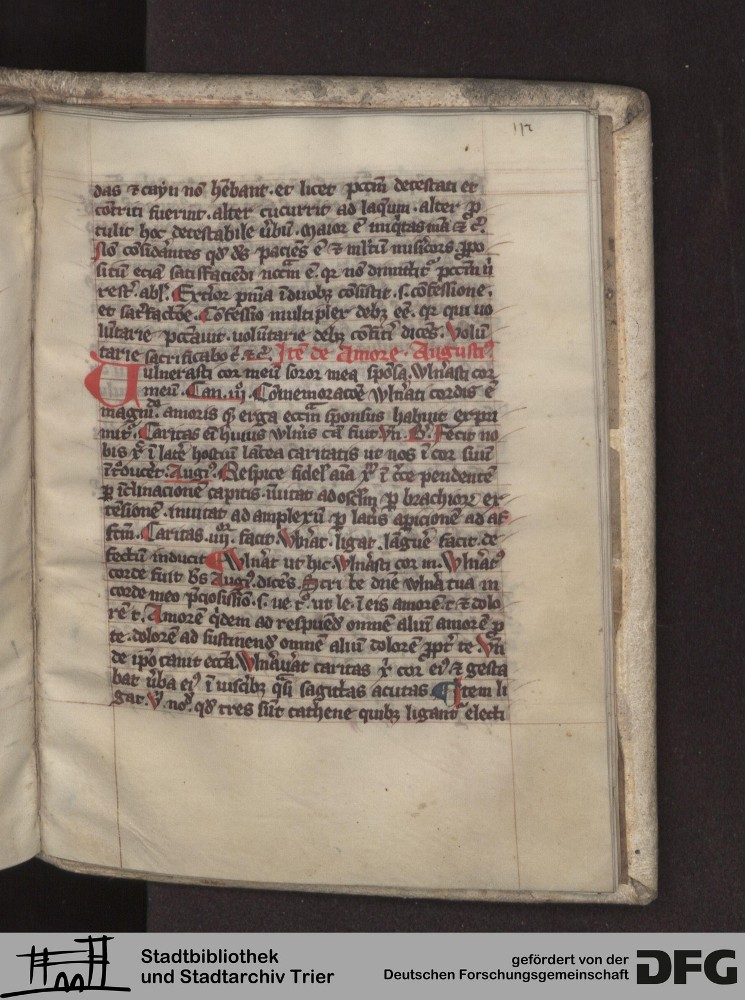 112
das ⁊ cayn nō hēbant. et licet pctm̄ detestati et
cōtriti fuerint. alter cucurrit ad laqum. alter p
tulit hoc detestabile ubū. maior ē iniqͥtas mͣ ⁊ cͣ.
cōsidantes qd ds paciēs ē ⁊ mltū misicors. ppo
situm eciā satisfaciēdi nccm̄ ē. qr nō dimittitͬ pctm̄ ni
absͥ. Extior pnīa i duobꝫ cōsistit. s. cōfessione.
et satsfactōe. Cōfessio multiplex debꝫ eē. qr qui uo
lūtarie pccauit. uolūtarie debꝫ cōfiti dicēs. Volū
tarie sacrificabo t. ⁊ c̄. Itē de Amore. Augustiꝰ
Uulnerasti cor meū soror mea spōsa. wlnasti cor
meū. Can. iiij. Cōmemoratōe wlnati cordis ē
magnū amoris qͥ erga ecciam sponsus habuit expri
mitͬ. Caritas ēī huius wlnis cā fuit. Fecit no
bis xͬ i latē hostiū latea caritatis ut nos i cor suū
ītͬoduceͬt. Augꝰ. Respice fidelͥ aīa xͬ i cͬce pendentē
p īclinacionē capitis. inuitat ad osclm̄ p brachiorͥ ex
tēsionē. inuitat ad amplexū p latis apicionē ad af
fctm̄. Caritas. iiijor. facit. Wlnat. ligat. lāguē facit. de
fectū inducit. Wlnat ut hic. wlnasti cor m. Wlnatꝰ
corde fuit bs Augꝰ. dicēs. Scribe dnē wlna tua in
corde meo pciosissīo. s. ue tͦ. ut le. i eis amorē. t ⁊ dolo
rē t. Amorē qͥdem ad respuēd omnē aliū amorē p
te. dolorē ad sustinend omnē aliū dolorē ppt te. Vn
de ipō canit eccͣ. Wlnauat caritas xͬ cor eiꝰ ⁊ gesta
bat uba eiꝰ i uiscibꝫ qͣsi sagittas acutas. Item li
gat. nō. qd tres sūt cathene quibꝫ ligant electi
Stadtbibliothek
und Stadtarchiv Trier
gefördert von der
Deutschen Forschungsgemeinschaft
DFG